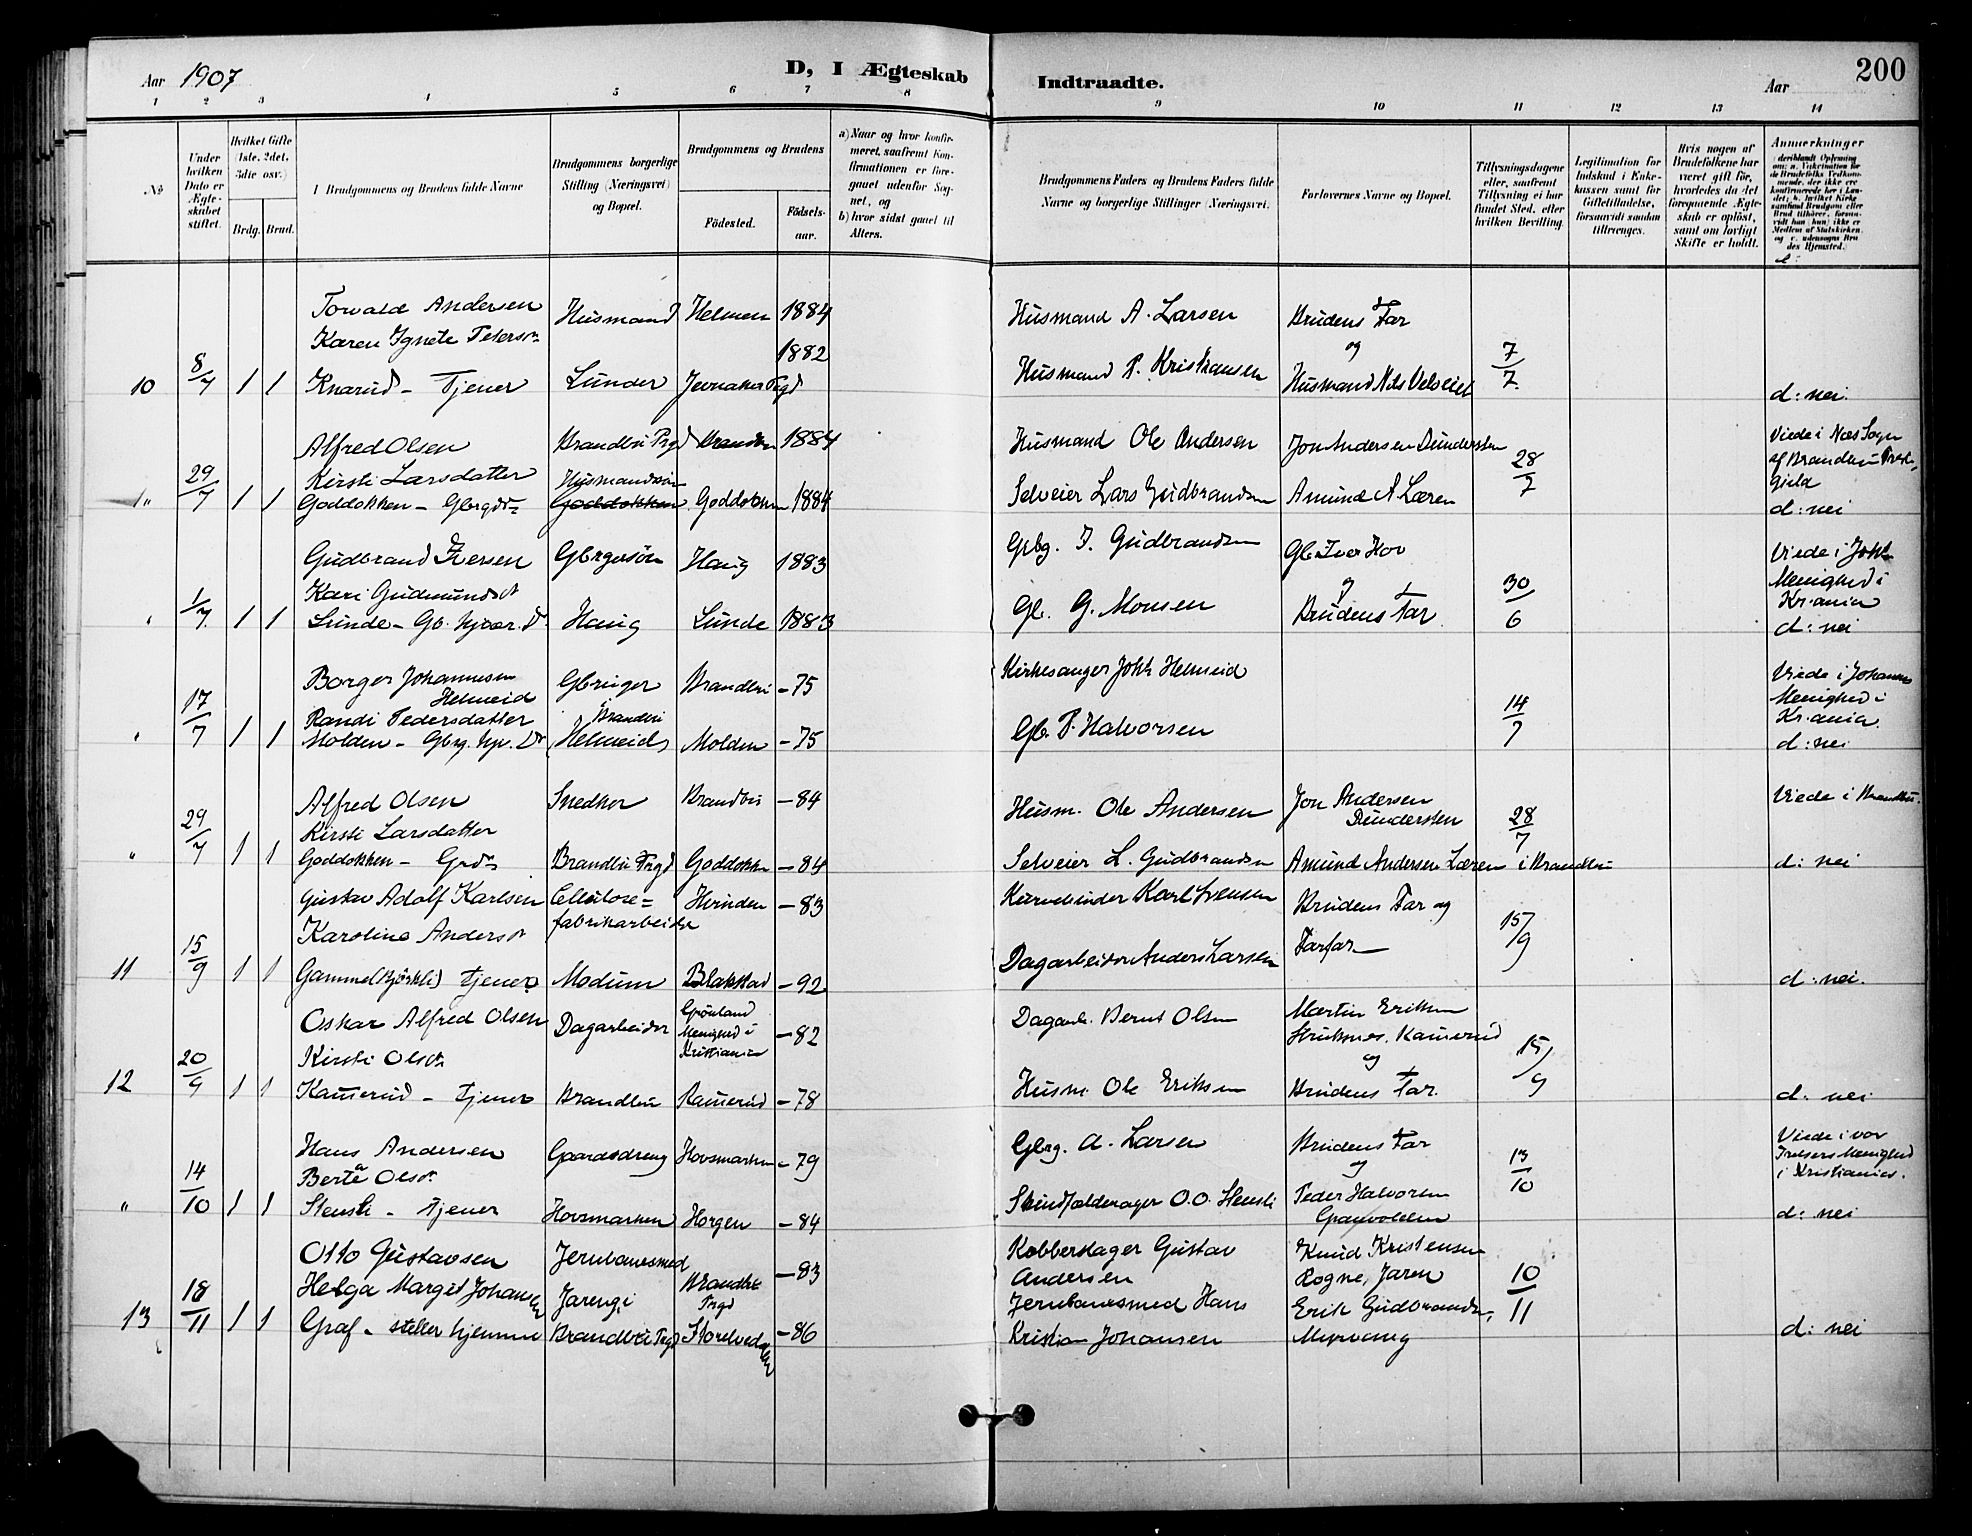 Aar 1907
D, I Ægteskab Indtraadte.
Aar
200
1 2 3 4 5 6 7 8 9 10 11 12 13 14
No.
Under hvilken Dato er Ægteskabet stiftet.
Hvilket Gifte (1ste, 2det, 3die osv.)
Brdg. Brud.
Brudgommens og Brudens fulde Navne
Brudgommens borgerlige Stilling (Næringsvei) og Bopæl.
Brudgommens og Brudens
Fødested.
Fødselsaar.
a) Naar og hvor konfirmeret, saafremt Konfirmationen er foregaaet udenfor Sognet, og
b) hvor sidst gaaet til Alters.
Brudgommens Faders og Brudens Faders fulde Navne og borgerlige Stillinger (Næringsvei).
Forlovernes Navne og Bopæl.
Tillysningsdagene eller, saafremt Tillysning ei har fundet Sted, efter hvilken Bevilling.
Legitimation for Indskud i Enkekassen samt for Giftetilladelse, forsaavidt saadan tiltrænges.
Hvis nogen af Brudefolkene har været gift før, hvorledes da det foregaaende Ægteskab er opløst, samt om lovligt Skifte er holdt.
Anmerkninger
Torvald Andersen Husmand Helmen 1884 Husmand A. Larsen Brudens Far
Karen Agnete Petersd. 1882 og
10 8/7 1 1 Knarud - Tjener Lunder Jevnaker Prgd Husmand P. Kristiansen Husmand Nils Velseiet 7/7 d: nei.
Alfred Olsen Brandbu Prgd Brandbu 1884 Husmand Ole Andersen Jon Andersen Dundersten Viede i Næs Sogn
Kirsti Larsdatter Husmandssøn 28/7 af Brandbu Præstegjeld
" 29/7 1 1 Goddokken - Gbrgdtr. Goddokken Goddokken 1884 Selveier Lars Gudbrandsen Amund A Læren d: nei
Gudbrand Iversen Gbrgersøn Haug 1883 Gbg. I. Gudbrandsen Gb. Iver Hov Viede i Johs
Kari Gudmundsd. og 30/6 Menighed i
" 1/7 1 1 Lunde - Gb. hjver. D. Haug Lunde 1883 Gb. G. Monsen Brudens Far Kr.ania
d: nei
Borger Johannesen Helmeid Gbruger Brandbu - 75 Kirkesanger Johs Helmeid Viede i Johannes
Randi Pedersdatter i Brandbu 14/7 Menighed i
" 17/7 1 1 Molden - Gbrg. hjv. D. Helmeid Molden - 75 Gb. P. Halvorsen Kr.ania.
d: nei
Alfred Olsen Snedker Brandbu - 84 Husm. Ole Andersen Jon Andersen Dundersten Viede i Brandbu.
Kirsti Larsdatter 28/7
" 29/7 1 1 Goddokken - Brandbu Prgd Goddokken - 84 Selveier L. Gudbrandsen Amund Andersen Læren i Brandbu d: nei
Gustav Adolf Karlsen Cellulose= Hvinden - 83 Kurvebinder Karl Svensen Brudens Far og
Karoline Andersd. fabrikarbeider 15/9 Farfar
11 15/9 1 1 Gamme (Bjørkli) tjener Modum Blakstad - 92 Dagarbeider Anders Larsen d: nei.
Oskar Alfred Olsen Dagarbeider Grønland Menighed i Kristiania - 82 Dagarb. Bernt Olsen Martin Eriksen
Kirsti Olsdtr. og 15/9
12 20/9 1 1 Kamerud - tjener Brandbu Kamerud - 78 Husm. Ole Eriksen Brudens Far. d: nei
Hans Andersen Gaardsdreng Hovsmarken - 79 Gbrg. A. Larsen Brudens Far Viede i vor
Berte Olsd. og 13/10 Frelsers Menighed
" 14/10 1 1 Stensli - tjener Hovsmarken Horgen - 84 Skindfælderager O.O. Stensli Peder Halvorsen Granvolden i Kristiania.
d: nei
Otto Gustavsen Jernbanesmed - 83 Kobberslager Gustav Andersen Knud Kristensen Rogne, Jaren
Helga Margit Johansen Jaren i Brandbu Prgd 10/11
13 18/11 1 1 Graf - steller hjemme Brandbu Prgd Storelvedalen - 86 Jernbanesmed Hans Kristian Johansen Erik Gudbrands. Myrvang d: nei